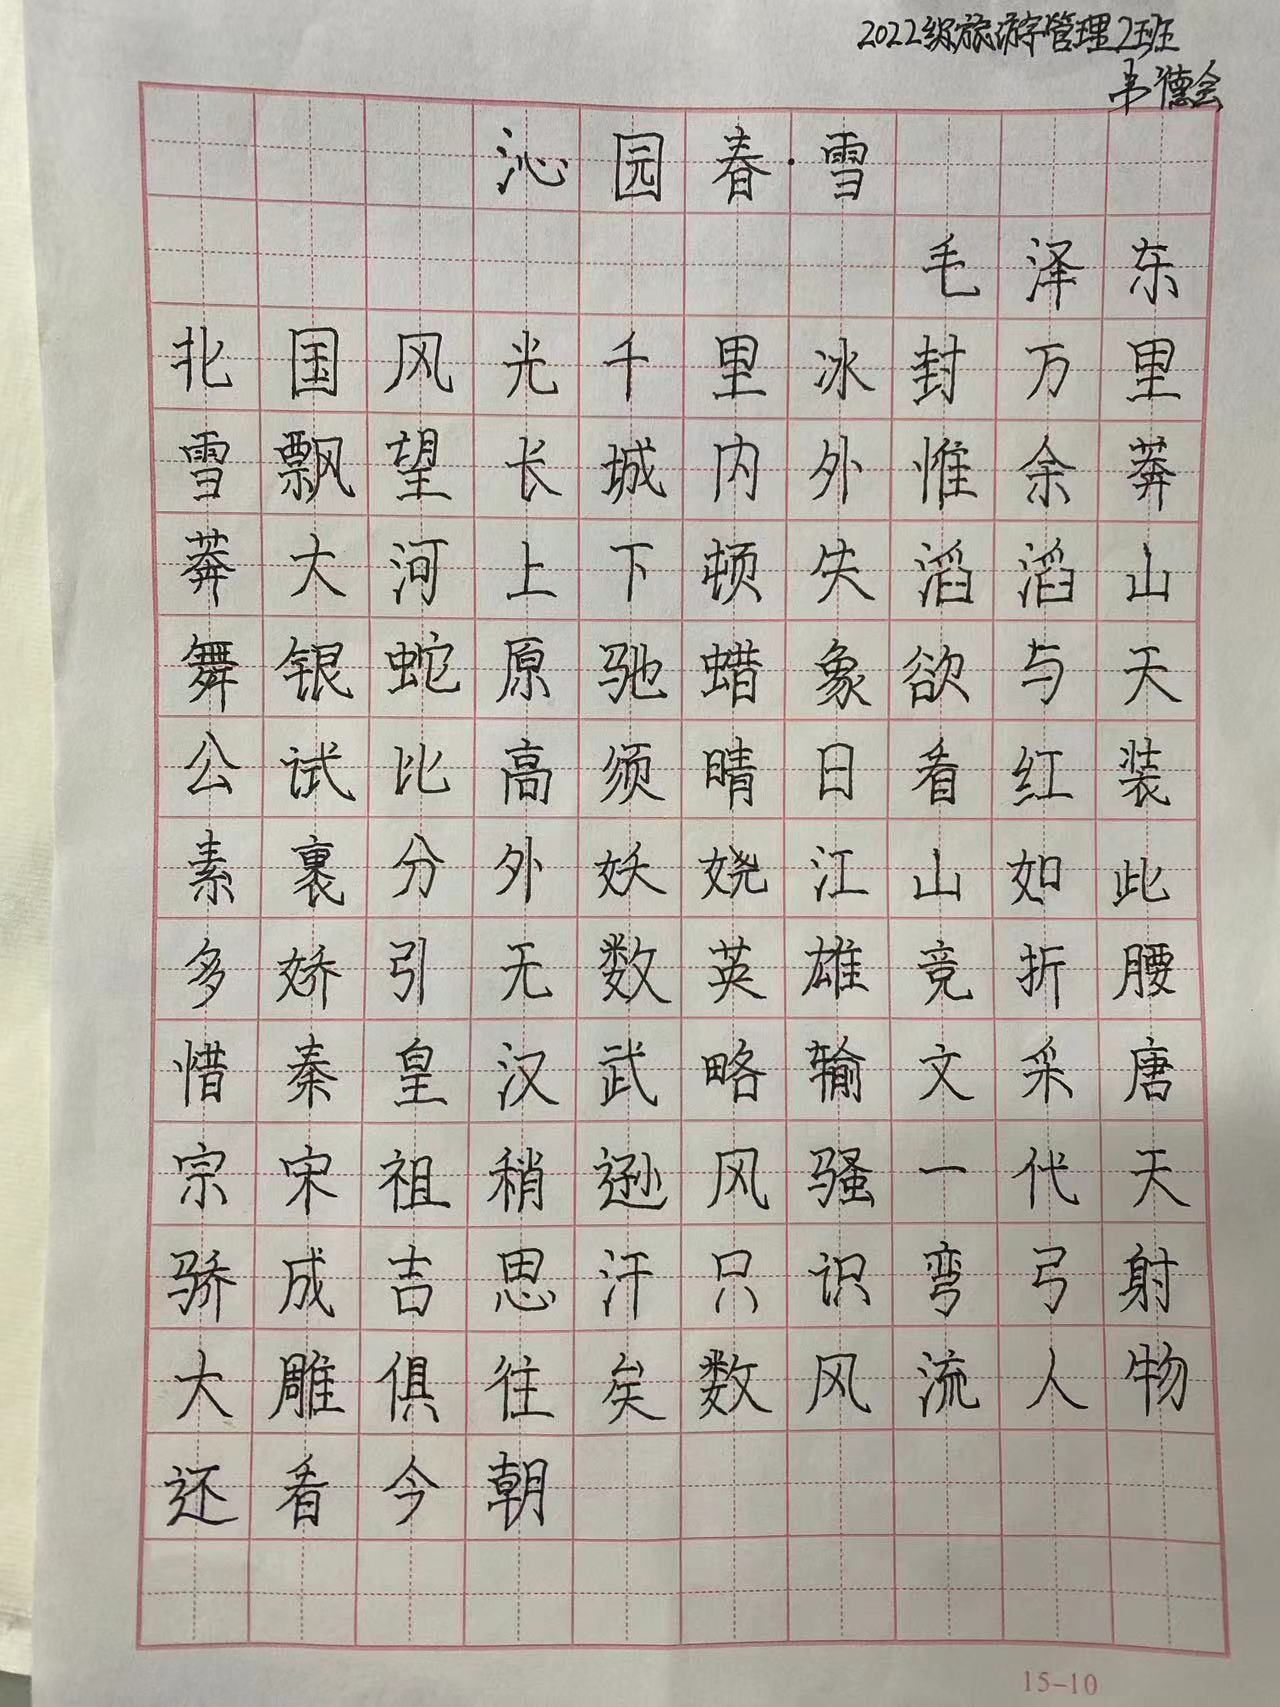 2022级旅游管理2班
韦德会
沁园春·雪
毛泽东
北国风光千里冰封万里
雪飘望长城内外惟余莽
莽大河上下顿失滔滔山
舞银蛇原驰蜡象欲与天
公试比高须晴日看红装
素裹分外妖娆江山如此
多娇引无数英雄竞折腰
惜秦皇汉武略输文采唐
宗宋祖稍逊风骚一代天
骄成吉思汗只识弯弓射
大雕俱往矣数风流人物
还看今朝
15-10